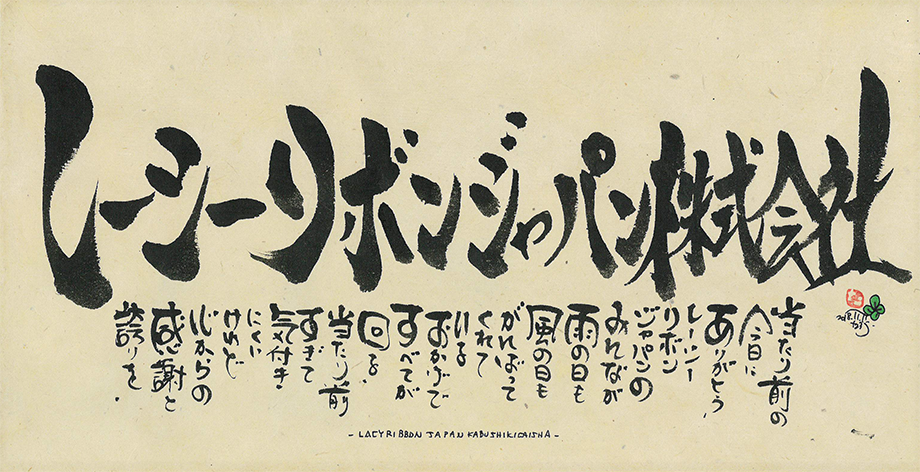 レーシーリボンジャパン株式会社
当たり前の
今日に
ありがとう.
レーシー
リボン
ジャパンの
みんなが
雨の日も
風の日も
がんばって
くれて
いる
おかげで
すべてが
回る.
当たり前
すぎて
気付き
にくい
けれど
心からの
感謝と
誇りを.
- LACYRIBBON JAPAN KABUSHIKIGAISHA -